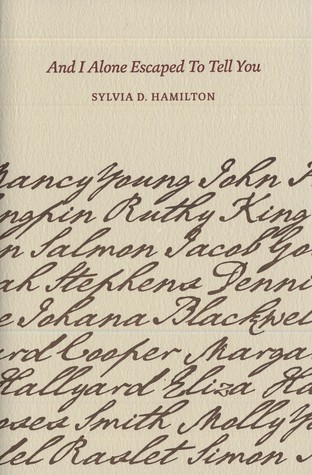 And I Alone Escaped To Tell You
SYLVIA D. HAMILTON
Nancy Young John
Ruthy King
Salmon Jacob
Stephens Denni
Johana Blackwel
Cooper Marga
Hallyard Eliza Ha
oses Smith Molly Yo
Raslet Simon